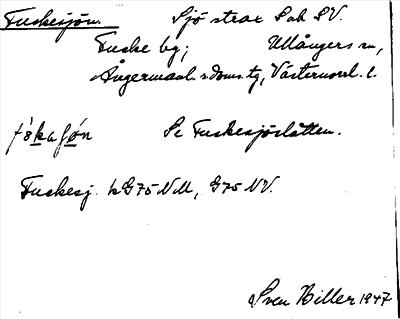 Fuskesjön. Sjö strax S ok SV.
Fuske by; Ullångers sn,
Ångermanl. s. doms. tg, Västernorrl. l.
Se Fuskesjöslåtten.
Fuskesj. k G75 NV, G75 NV.
Sven Hiller 1947